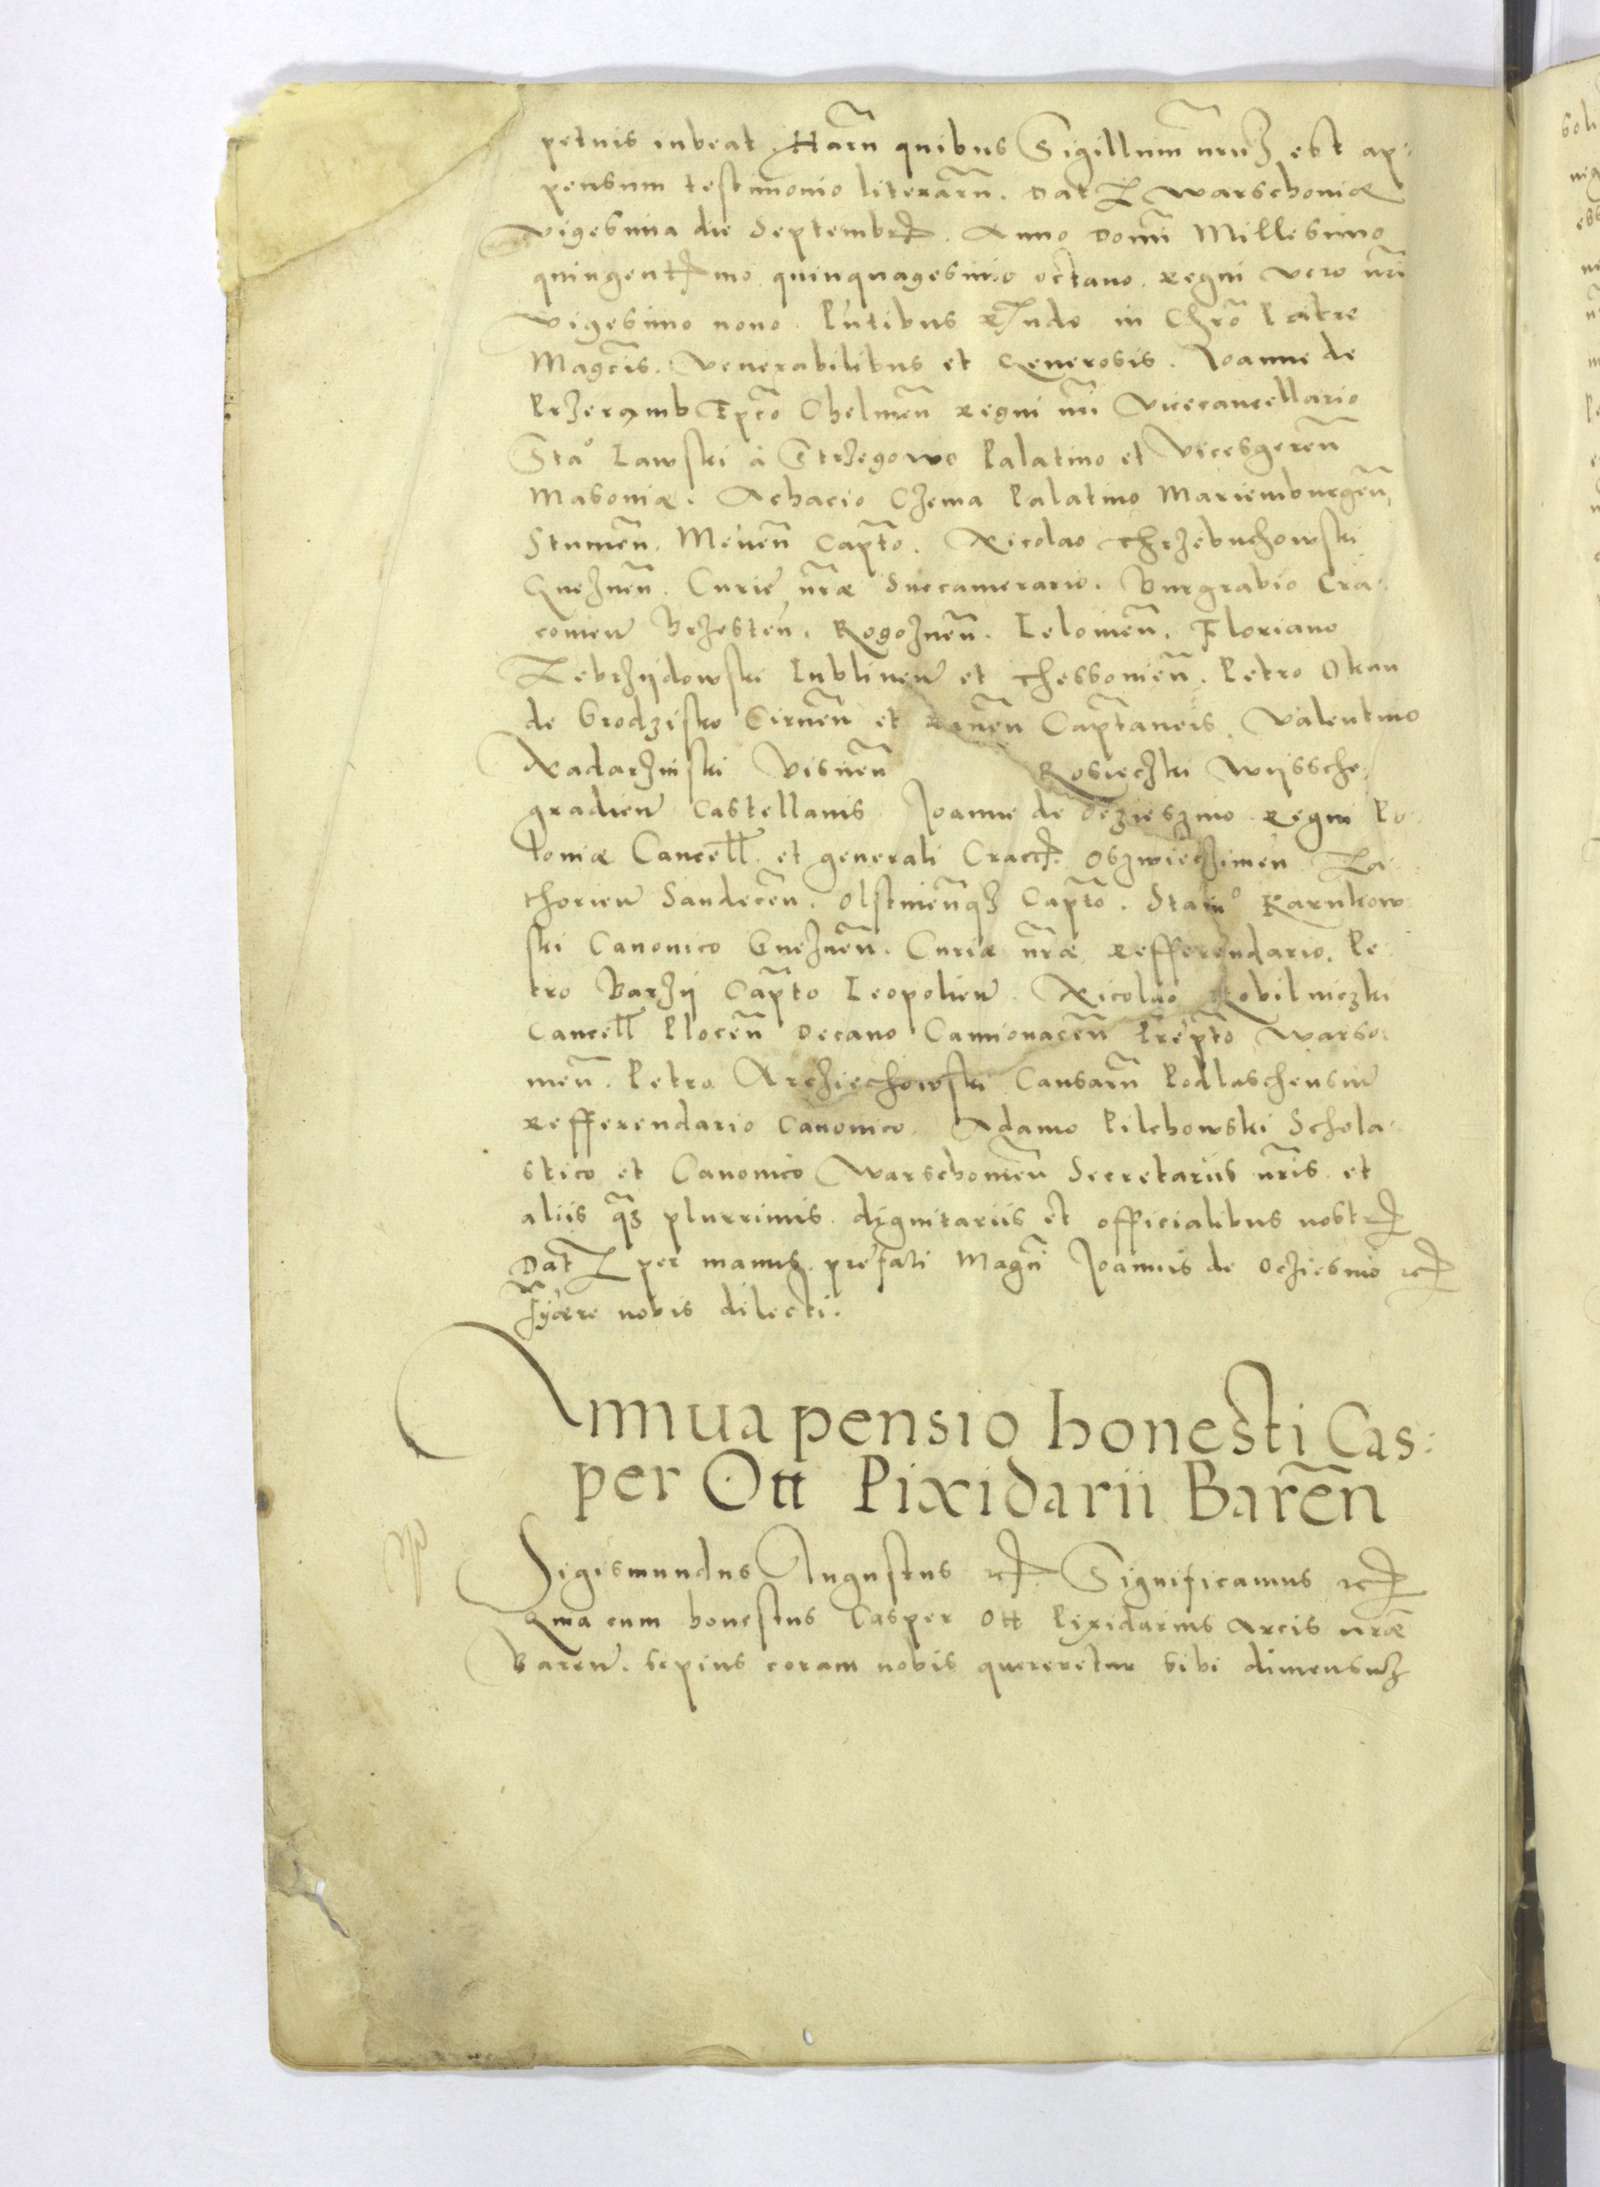 petuis iubeat. Harũ quibus Sigillum nrũ est ap:
pensum testimonio literarũ. Dat Warschoviæ
vigesima die Septembr. Anno Domi Millesimo
quingentmo quinquagesimo octavo. regni vero nri
vigesimo nono. Pntibus Rndo in Chro Patre
Magcis. Venerabilibus et Generosis. Joanne de
Przerąmb Epco Chelmen regni nri Vicecancellario
Stao Lawski à Strzegowo Palatino et Vicesgeren
Masoviæ. Achacio Czema Palatino Mariemburgen,
Stumen. Meven Capto. Nicolao Thrzebuchowski
Gneznen. Curie nræ Succamerario. Burgrabio Cra:
covien Brzesten. Rogoznen. Lelovien. Floriano
Zebrzydowski Lublinen et Thessovien. Petro Okun
de Grodzisko Cirnen et Capitaneis. Valentino
Nadarzinski Visnen Rosieczki Wyssche:
gradien Castellanis Joanne de Oczieszino regni Po:
loniæ Cancell. et generali Cracc. Oszwieczimen Za:
thorien Sandecen. Olstinenqz Capto. Stanο Karnkow:
ski Canonico Gneznen. Curiæ nræ refferendario. Pe:
tro Barzy Capto Leopolien. Nicolao Kobilniczki
Cancell Plocen Decano Camionacen Prepto Warso:
vien. Petro Arcziechowski Causarũ Podlaschensiũ
refferendario Canonico. Adamo Pilchowski Schola:
stico et Canonico Warschovien Secretariis nris. et
aliis qz plurrimis dignitariis et officialibus nostr
Dat per manus prefati Magci Joannis de Ocziesino etc
syncere nobis dilecti.
Annua pensio honesti Cas:
per Ott Pixidarii Baren
Sigismundus Augustus etc. Significamus etc
Quia cum honestus Casper Ott Pixidarius Arcis nræ
Baren. sepius coram nobis quereretur sibi dimensuz